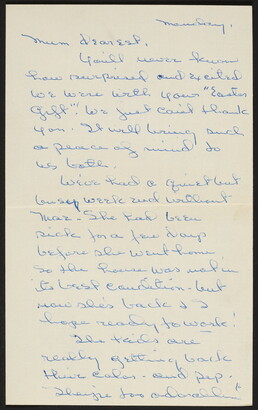 Monday,
Mum Dearest,
You'll never know
how surprised and excited
we were with your "Easter
Gift"! We just can't thank
you. It will bring such
a peace of mind to
us both.
We've had a quiet but
busy week end without
Mae - She had been
sick for a few days
before she went home
so the house was not in
its best condition - but
now she's back & I
hope ready to work!
The kids are
really getting back
their color - and pep.
They're too adorable